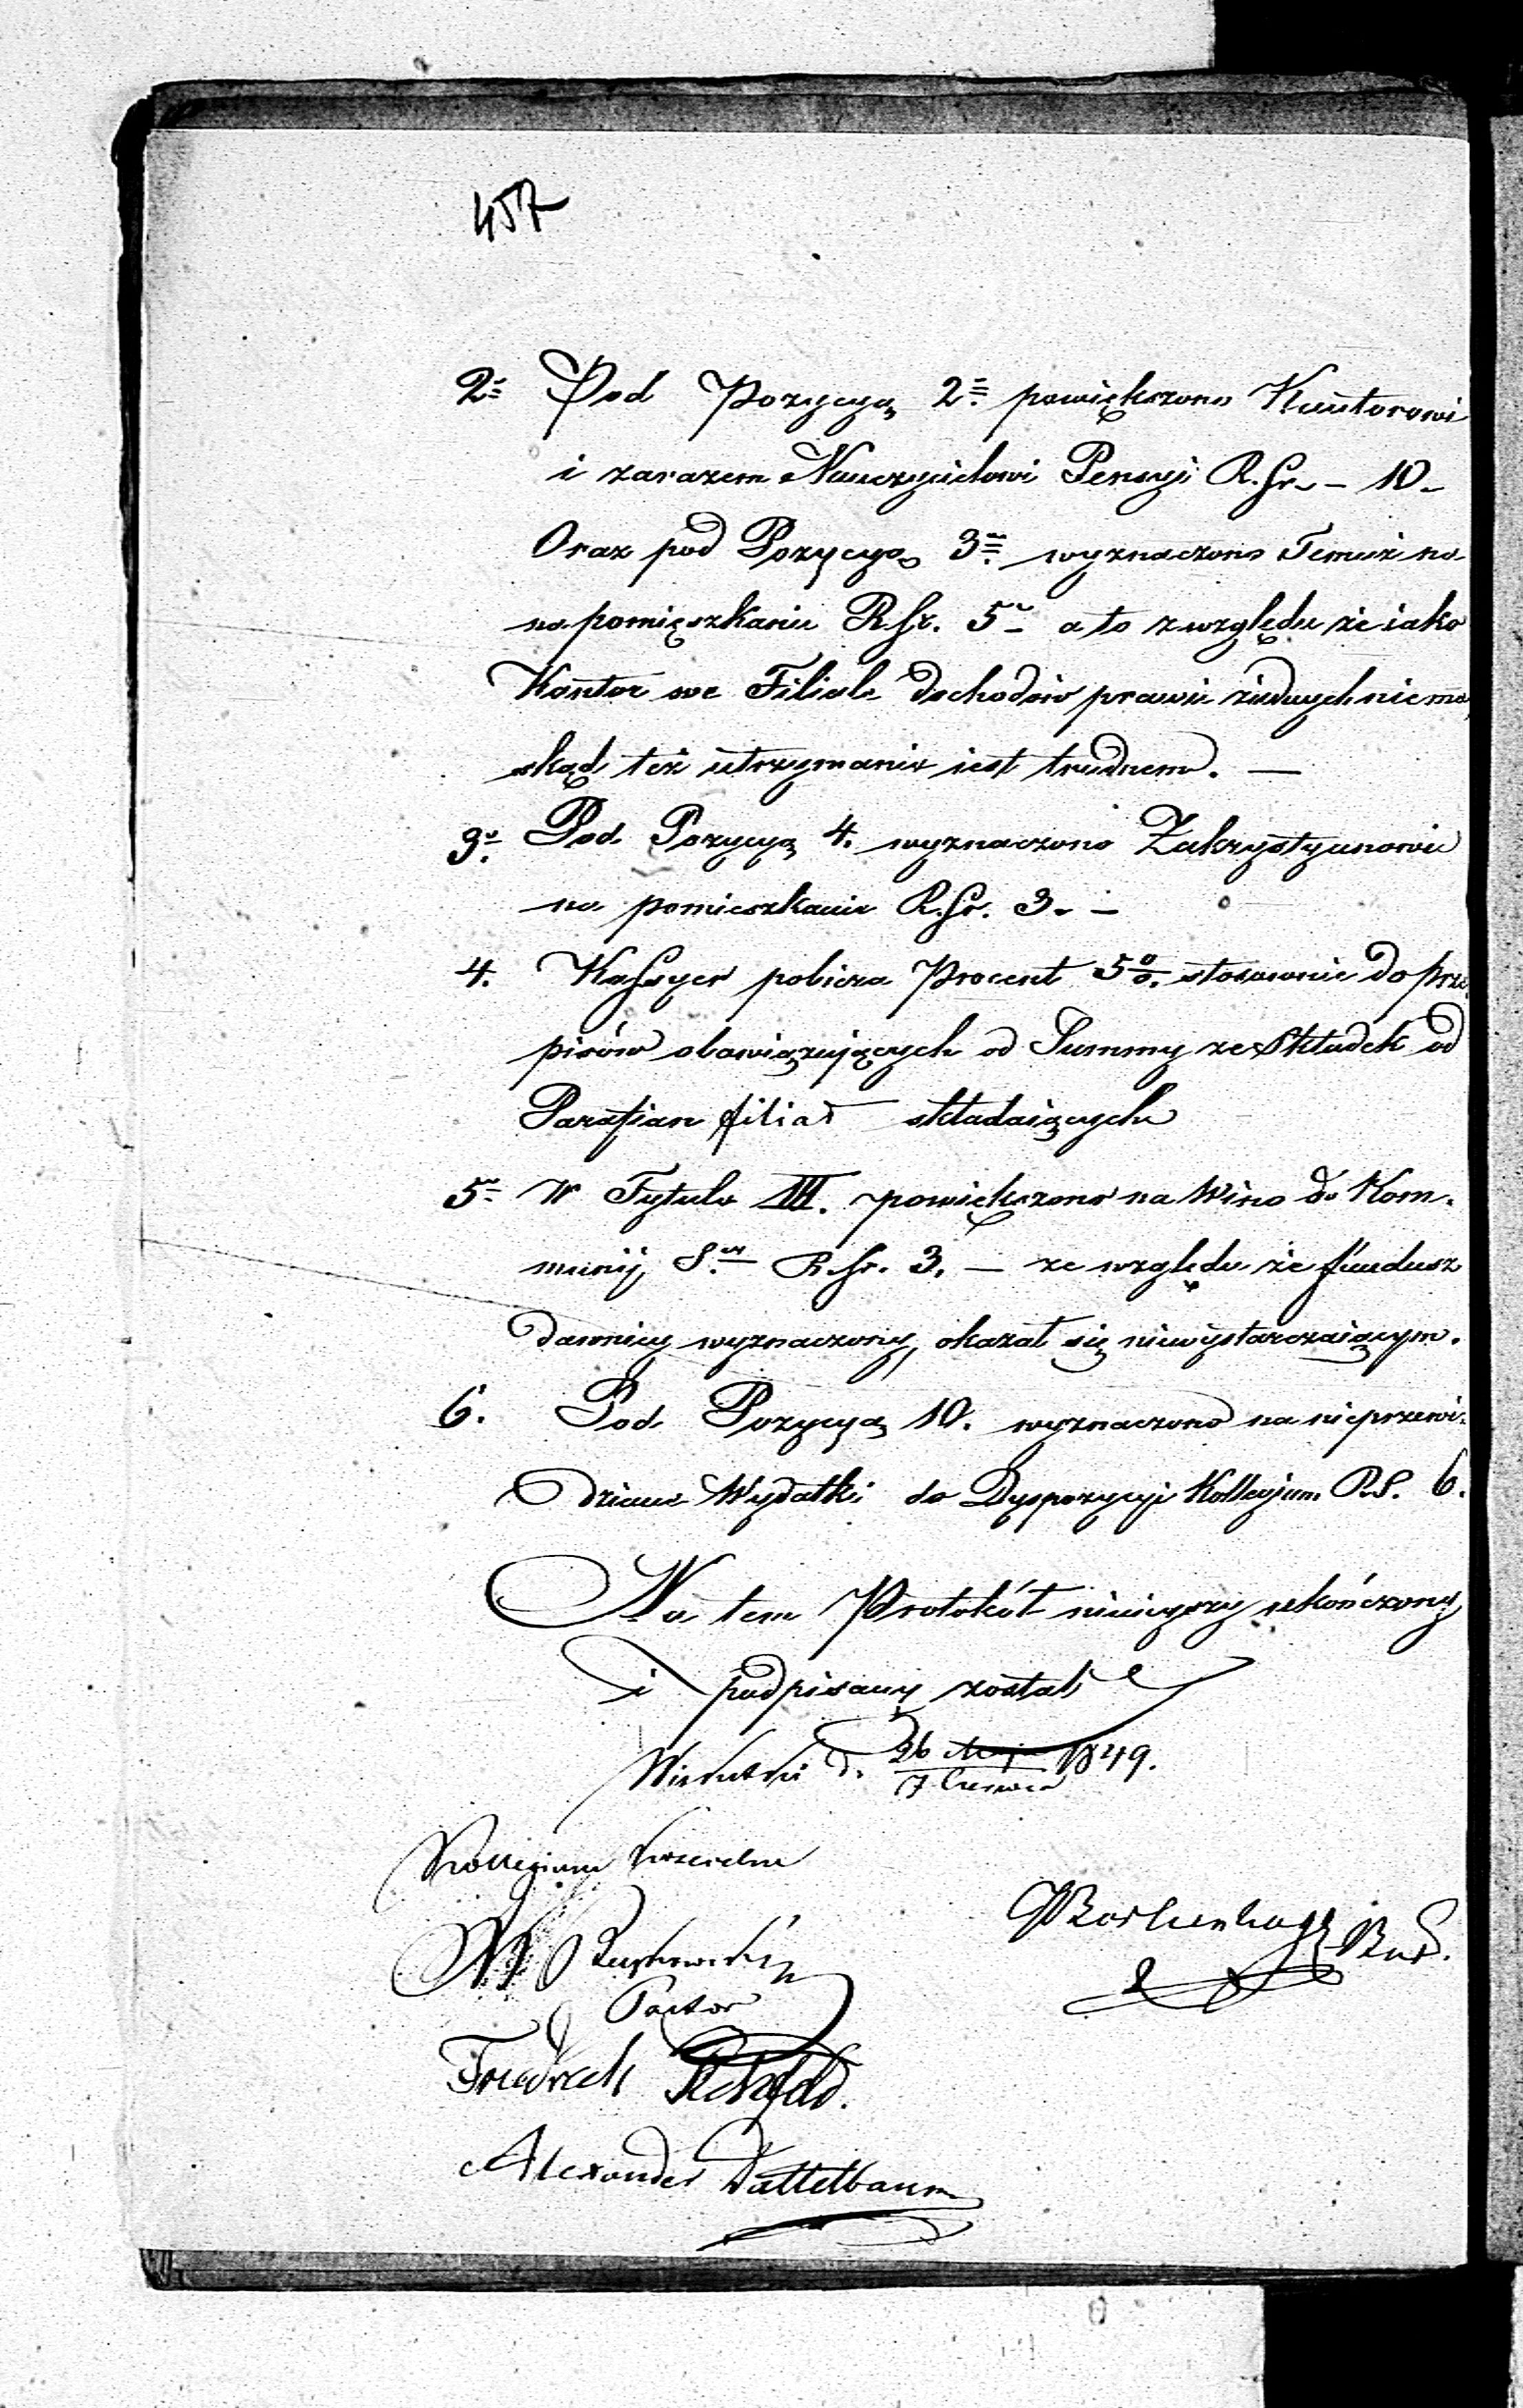 457
2. Pod Pozycyą 2. powiększono Kantorowi
i zarazem Nauczycielowi Pensyi R.Sr. – 10.
Oraz pod Pozycyą 3. wyznaczono Temuż na
na pomięszkanie R.Sr. 5 – a to z względu że iako
Kantor we Filiale dochodów prawie żadnych niema,
skąd też utrzymanie iest trudnem. —
3. Pod Pozycyą 4. wyznaczono Zakrystyanowi
na pomieszkanie R.Sr. 3. –
4. Kassyer pobiera Procent 5%. stosownie do prze
pisów obowiązujących od Summy ze Składek od
Parafian filiał składaiących
5. W Tytule III. powiększono na Wino do Kom-
munij S. R.Sr. 3. — ze względu że fundusz
dawniey wyznaczony, okazał się niewystarczaiącym.
6. Pod Pozycyą 10. wyznaczono na nieprzewi-
dziane Wydatki do Dyspozycyi Kollegium R.S. 6.
Na tem Protokół ninieyszy ukończony
i podpisany został
d. 26 Maja / 7 Czerwca 1849.
Kollegium Kościelne
Pastor
Friedrich
Alexander Dattelbaum